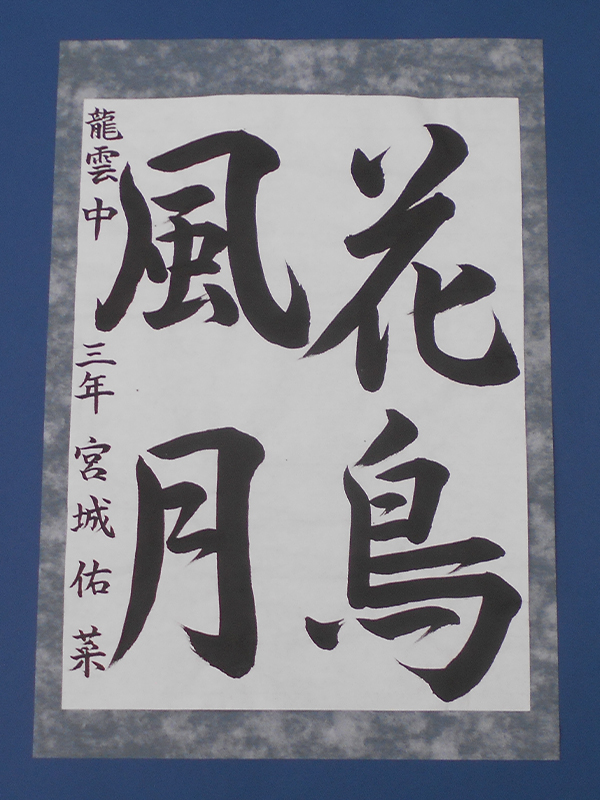 花鳥
風月
龍雲中 三年 宮城佑菜